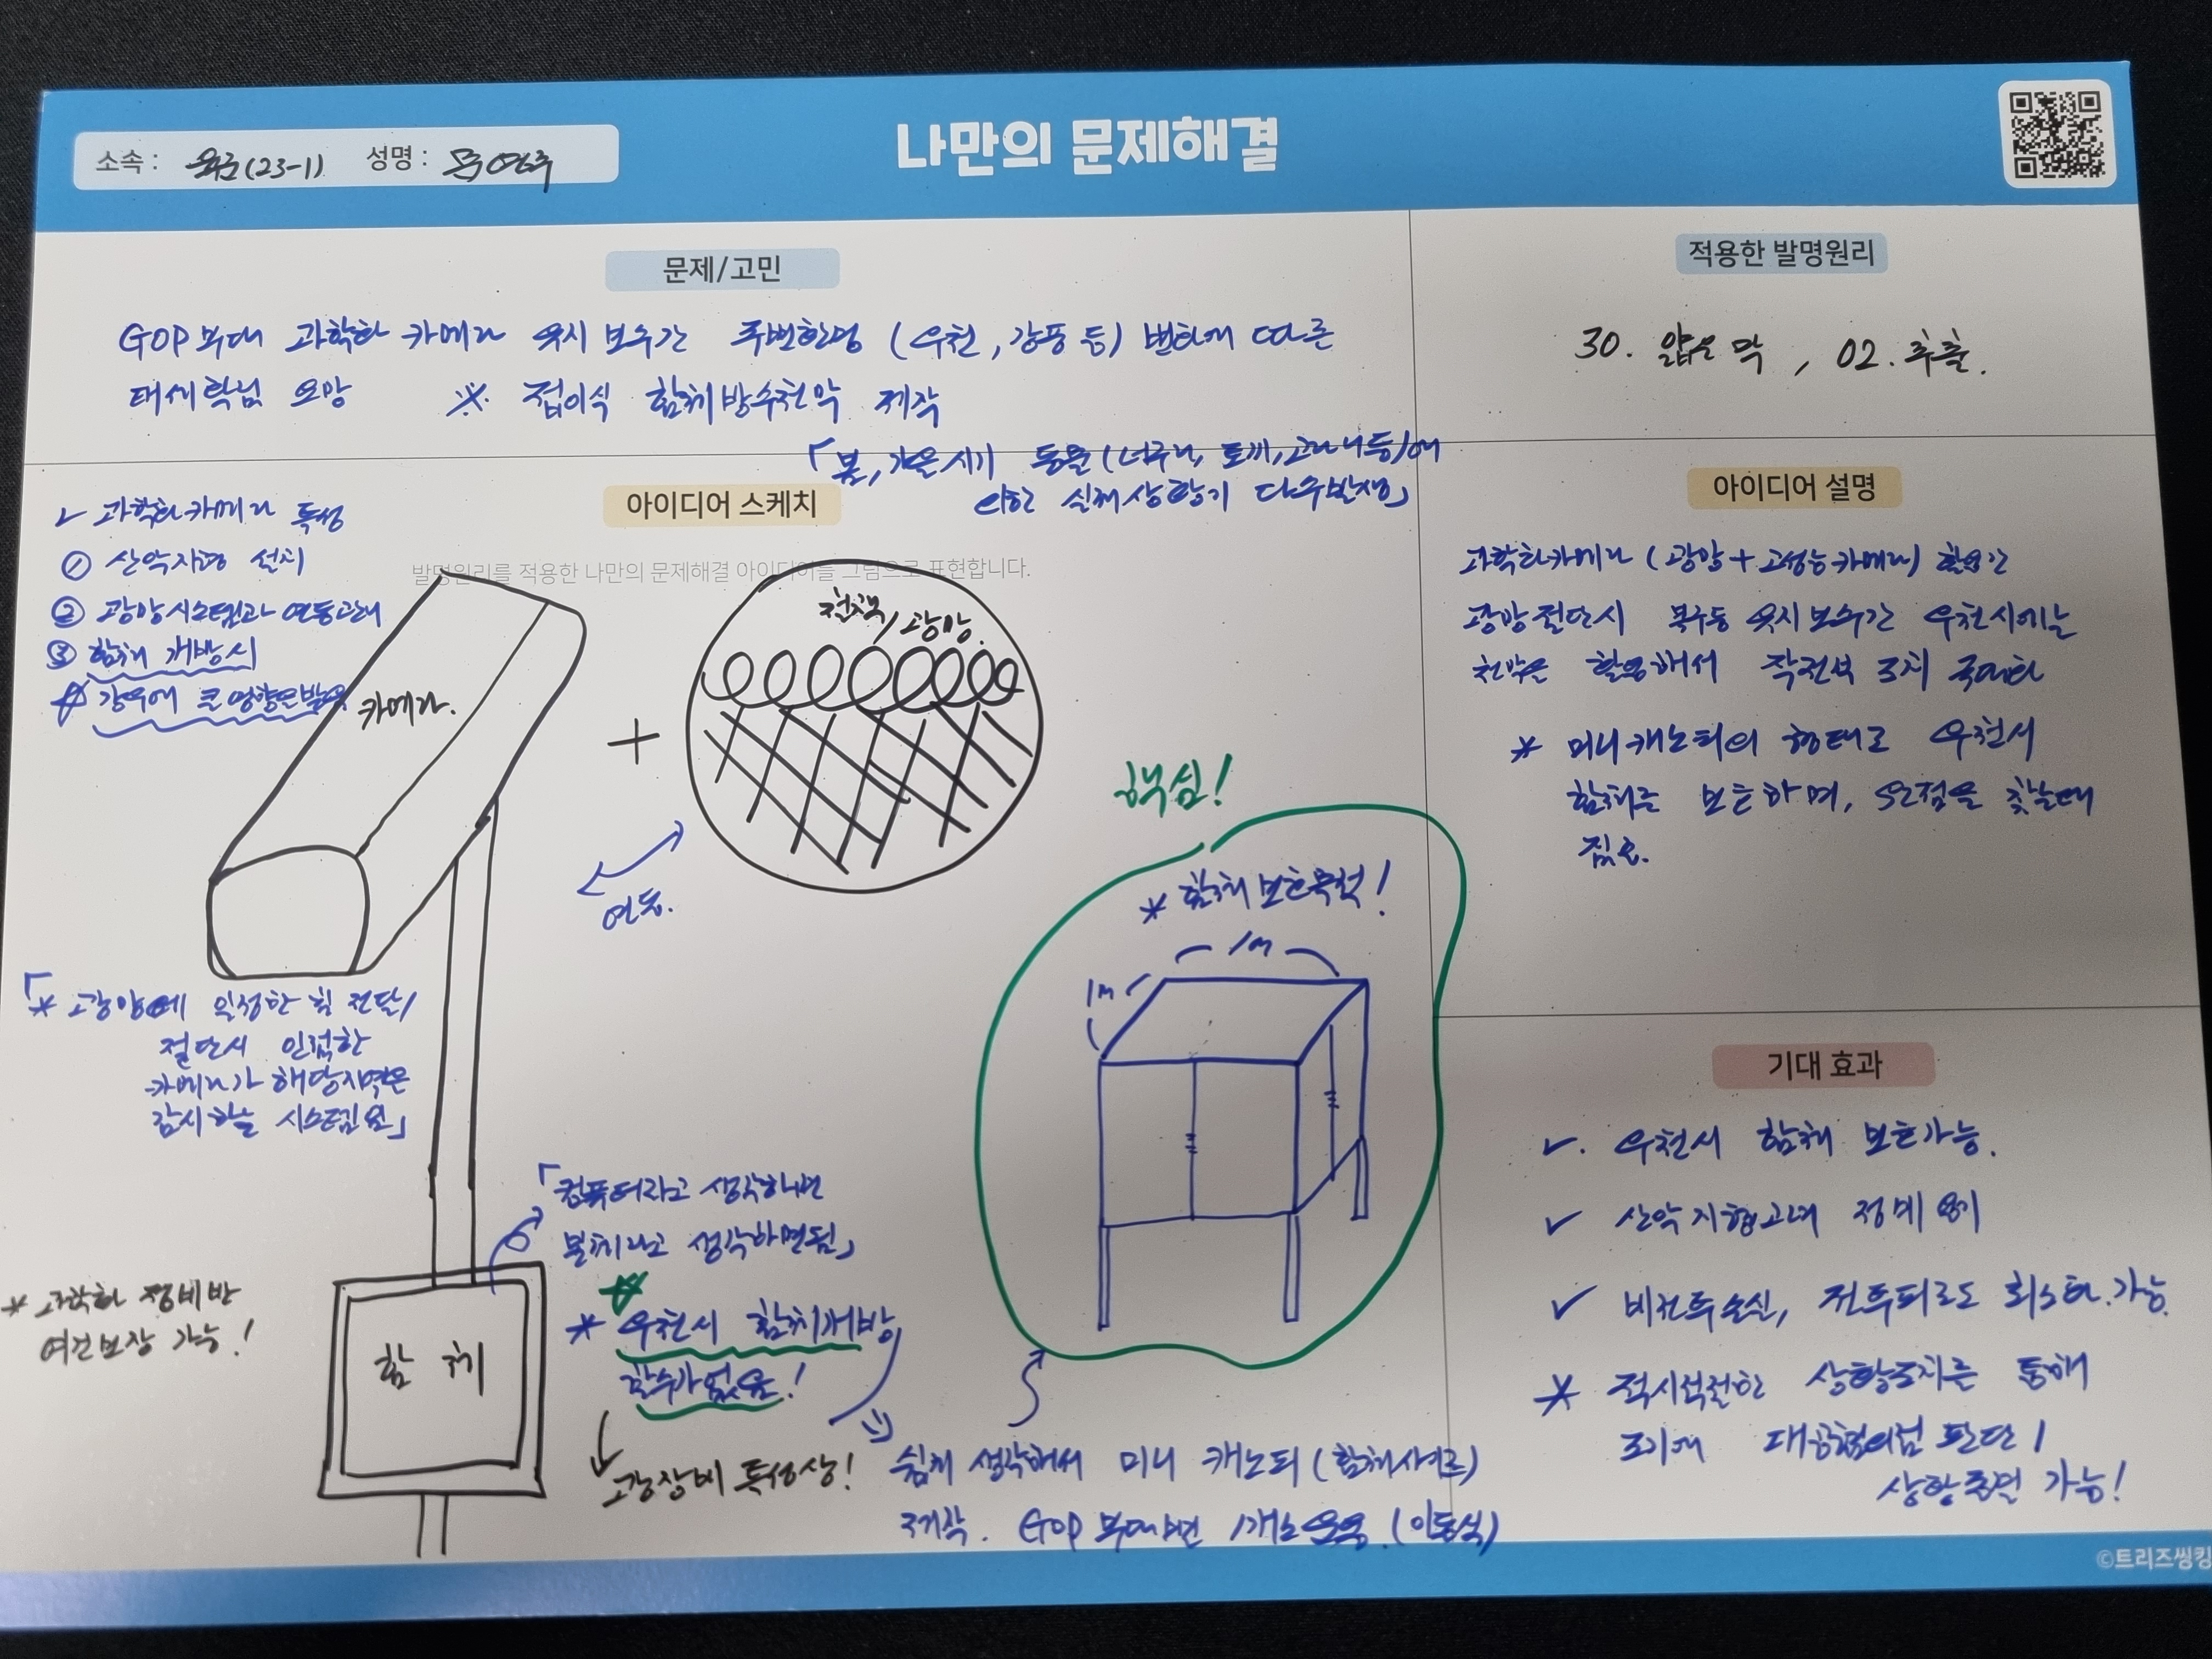 나만의 문제해결
소속 : 육군(23-1) 성명 :
문제/고민
GOP부대 과학화 카메라 웃시 보수간 주변환경 (우천, 강풍 등) 변화에 따른
대비책님 요망 ※ 접이식 함체방수천막 제작
「봄, 가을시기 동물(너구리, 토끼, 고라니등)에
의한 실제상황기 다수발생」
적용한 발명원리
30. 얇은 막 , 02. 추출.
아이디어 스케치
발명원리를 적용한 나만의 문제해결 아이디어를 그림으로 표현합니다.
✓ 과학화카메라 특성
① 산악지형 설치
② 광망시스템과 연동관계
③ 함체 개방시
☆ 강우에 큰 영향을받음
카메라.
+
철책/광망.
연동.
「* 광망에 일정한 힘 전달/
절단시 인접한
카메라가 해당지역을
감시하는 시스템임」
* 과학화 정비반
여건보장 가능!
함체
「컴퓨터라고 생각하면
본체라고 생각하면됨」
☆
* 우천시 함체개방이
할수가없음!
↓ 광장비 특성상!
핵심!
* 함체 보호목적!
1m
1m
쉽게 생각해서 미니 캐노피(함체사이즈)
제작. GOP 부대별 1개소 운용.(이동식)
아이디어 설명
과학화카메라 (광망+고성능카메라) 활용간
광망절단시 복구등 웃시보수간 우천시에는
천막을 활용해서 작전적 조치 극대화
* 미니캐노피의 형태로 우천시
함체를 보호하며, 요점을 찾는데
집요.
기대 효과
✓. 우천시 함체 보호가능.
✓ 산악지형고려 정비 용이
✓ 비전투손실, 전투피로도 최소화 가능.
* 적시적절한 상황조치를 통해
조기에 대공혐의점 판단/
상황종결 가능!
©트리즈씽킹